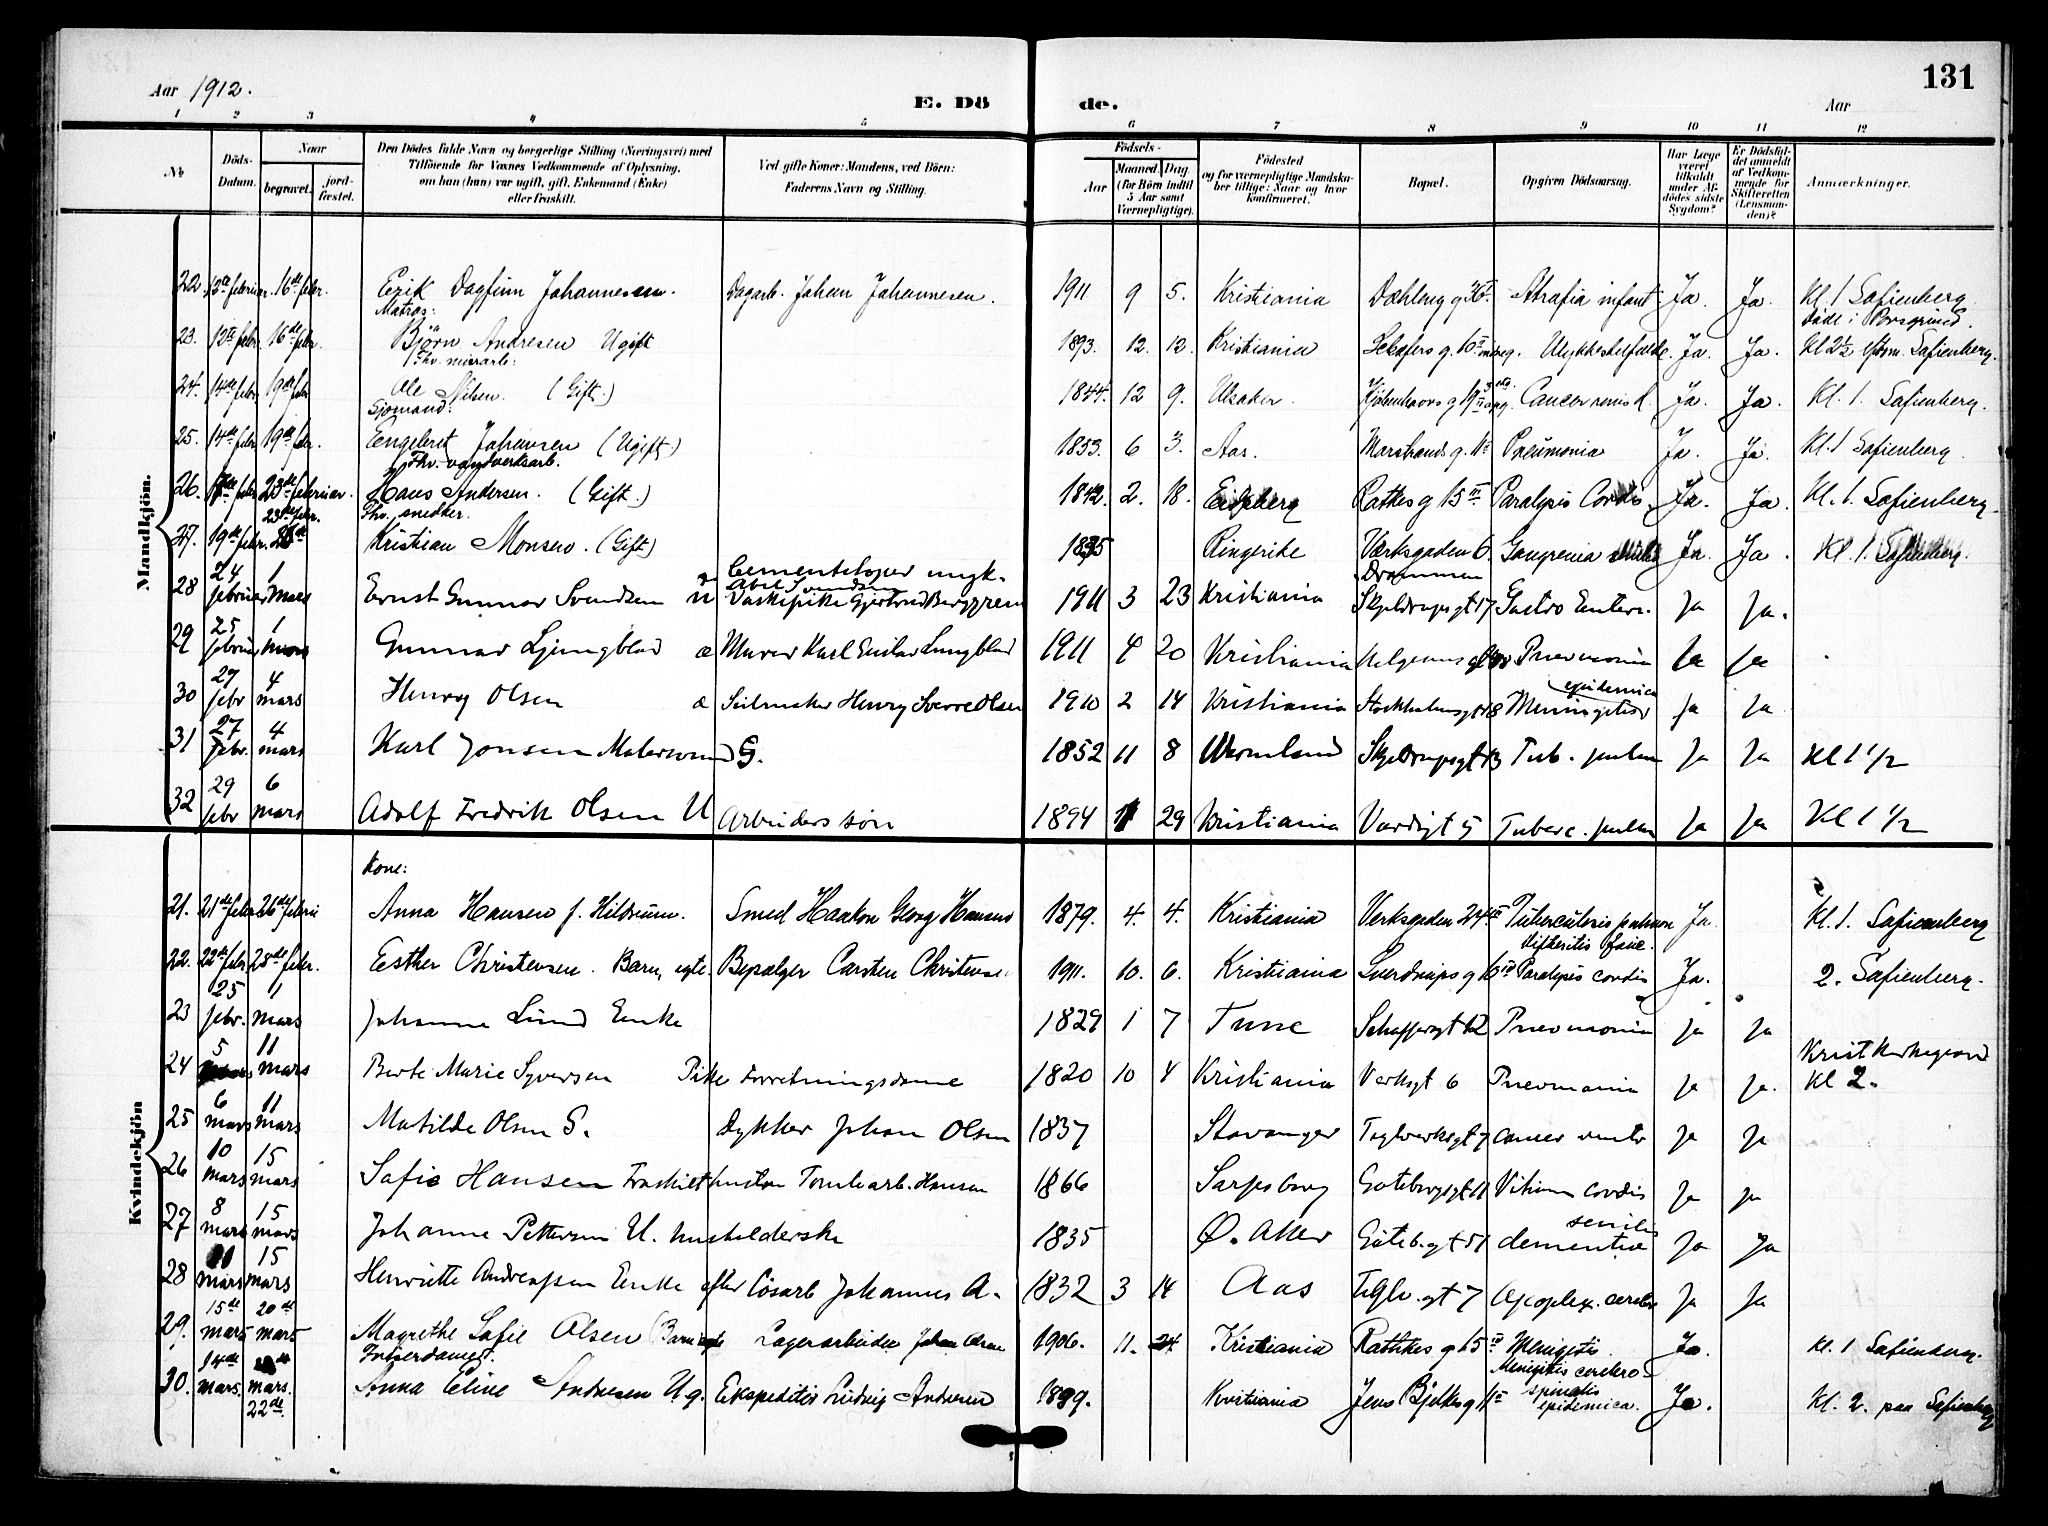 131
Aar 1912.
E. Dö de.
Aar
1 2 3 4 5 6 7 8 9 10 11 12
№
Döds-Datum.
Naar
begravet.
jord-fæstet.
Den Dödes fulde Navn og borgerlige Stilling (Næringsvei) med Tilföiende for Voxnes Vedkommende af Oplysning, om han (hun) var ugift, gift, Enkemand (Enke) eller fraskilt.
Ved gifte Koner: Mandens, ved Börn: Faderens Navn og Stilling.
Födsels-
Aar
Maaned. Dag.
(for Börn indtil 5 Aar samt Værnepligtige).
Födested og for værnepligtige Mandskaber tillige: Naar og hvor Konfirmeret.
Bopæl.
Opgiven Dödsaarsag.
Har Læge været tilkaldt under Afdödes sidste Sygdom?
Er Dödsfaldet anmeldt af Vedkommende for Skifteretten (Lensmanden)?
Anmærkninger.
Mandkjön.
22. 13de februar. 16de febr. Erik Dagfinn Johannessen. Dagarb. Johan Johannesen. 1911 9 5. Kristiania Dæhleng g 36. Atrofia infant. Ja. Ja. Kl. 1 Sofienberg
Matros: Död i Porsgrund.
23. 12te febr. 16de febr. Björn Andresen Ugift 1893. 12. 12. Kristiania Schæfers g. 10 Ulykkestilfælde. Ja. Ja. Kl 2½ Sofienberg.
24. 14de febr. 19de febr Ole Nilsen. (Gift.) 1844. 12 9. Ulsaker. Kjöbenhavns g 19 Cancer renis Ja. Ja. Kl. 1. Sofienberg.
Sjömand:
25. 14de febr 19de febr. Engebret Johansen (Ugift) 1853. 6 3. Aas. Marstrands g. 11 Pneumonia Ja. Ja. Kl. 1 Sofienberg.
Fhv. vandverksarb.
26. febr 23de februar. Hans Andersen. (Gift.) 2. 18. Eidsberg Rathkes g 15 III Paralysis Cordis. Ja Ja. Kl. 1. Sofienberg.
Fhv. snedker. 23de febr.
27. 19de febr. Kristian Monsen. (Gift) 1835 Ringerike Værksgaden 6. Gangrenia Ja Ja. Kl. 1. Sofienberg.
28 24 februar 1 mars Ernst Gunnar Svendsen u Cementstøper ungk. Abel Svendsen Vaskepike Gjertrud Berggren 1911 3 23 Kristiania Drammen Skjeldrupsgt 17 Gastro Enteri. Ja Ja.
29 25 februar 1 mars Gunnar Ljungblad æ Murer Karl Gustav Lungblad 1911 4 20 Kristiania Pnevmonia Ja Ja
30 27 febr 4 mars Henry Olsen æ Seilmaker Henry Sverre Olsen 1910 2 14 Kristiania Stockholmsgt 18 epidemica Meningitis Ja Ja
31 27 febr. 4 mars Karl Jonsen Malersvend G. 1852 11 8 Wermland Skjeldrupsgt 13 Tub. pulm Ja Ja Kl 1 1/2
32 29 febr 6 mars Adolf Fredrik Olsen U Arbeiders søn 1894 11 29 Kristiania Verdigt 5 Tuberc. pulm Ja Ja Kl 1 1/2
Kvindekjön
Kone:
21. 21de febr. 26de februar Anna Hansen f. Hildrum. Smed Haakon Georg Hansen 1879. 4. 4. Kristiania Verksgaden 24 Tuberculosis pulmon Ja. Kl. 1. Sofienberg
difteritis fauc.
22. 22de febr. 28de febr. Esther Christensen. Barn, egte. Bepælger Carsten Christensen 1911. 10. 6. Kristiania Paralysis cordis Ja. 2. Sofienberg.
23 25 febr. 11 mars Johanne Lund Enke 1829 1 7 Tune Schæffersgt 12 Pnevmonia Ja Ja
24 5 11 mars Berte Marie Syversen Pike Forretningsdame 1820 10 4 Kristiania Verksgt 6 Pnevmonia Ja Ja. Krist Kirkegaard Kl 2.
25 6 mars 11 mars Matilde Olsen G. Dykker Johan Olsen 1837 Stavanger Teglverksgt 7 cancer ventr Ja Ja
26 10 mars 15 mars Sofie Hansen Fraskilt hustru Tomtearb. Hansen 1866 Sarpsborg Göteborgsgt 11 Vitium cordis Ja Ja
27 8 mars 15 mars Johanne Pettersen U. husholderske 1835 Ø. Aker Göteb.gt 51 senilis dementia Ja Ja
28 mars 15 mars Henriette Andreassen Enke efter Løsarb Johannes A. 1832 3 14 Aas Teglv.gt 7 Apoplex. cerebri Ja Ja
29. 15de mars 20de mars Magrethe Sofie Olsen (Barn egte Lagerarbeider Johan Olsen 1906. 11. 24. Kristiania Rathkes g 15 Menigitis. Ja. Kl. 1 Sofienberg.
30. 14de mars. mars. 22de. Anna Eline Andresen Ug. Ekspeditör Ludvig Andresen 1899. Kristiania Jens Bjelkes g 11 Menigitis cerebro spinalis epidemica. Ja. Kl. 2. paa Sofienberg